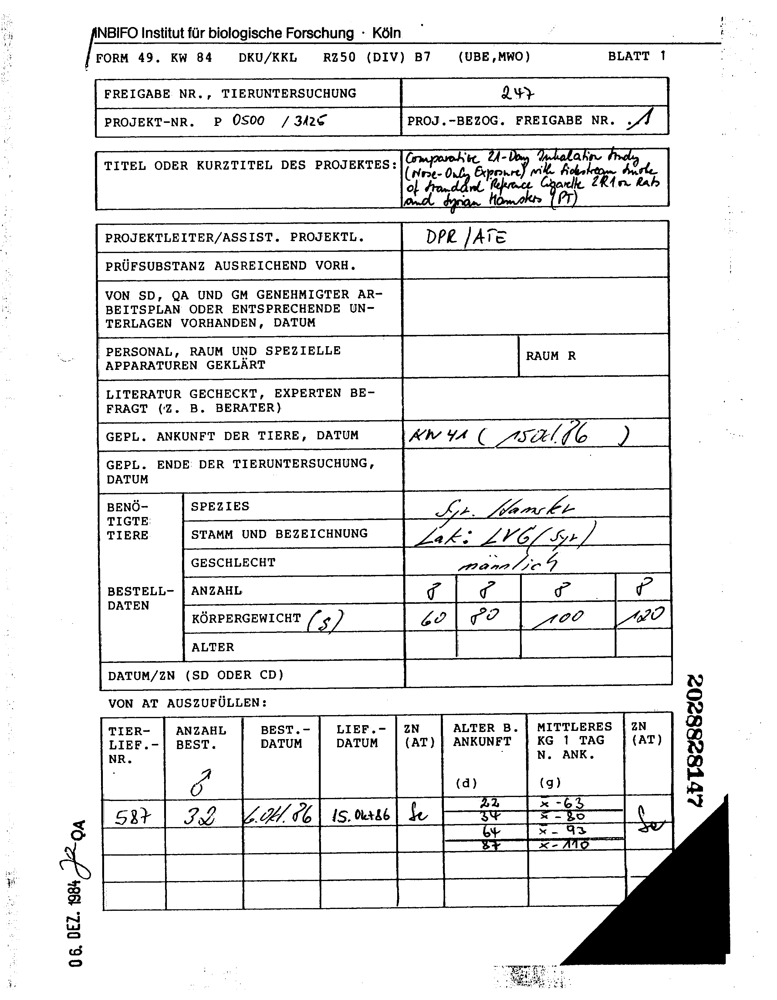 INBIFO Institut für biologische Forschung · Köln
FORM 49. KW 84 DKU/KKL RZ50 (DIV) B7 (UBE,MWO) BLATT 1
FREIGABE NR., TIERUNTERSUCHUNG 247
PROJEKT-NR. P 0500 / 3125 PROJ.-BEZOG. FREIGABE NR. .1
TITEL ODER KURZTITEL DES PROJEKTES:
Comparative 21-Day Inhalation Study
(Nose-Only Exposure) with Sidestream Smoke
of Standard Reference Cigarette 2R1 on Rats
and Syrian Hamsters (PT)
PROJEKTLEITER/ASSIST. PROJEKTL. DPR /ATE
PRÜFSUBSTANZ AUSREICHEND VORH.
VON SD, QA UND GM GENEHMIGTER AR-
BEITSPLAN ODER ENTSPRECHENDE UN-
TERLAGEN VORHANDEN, DATUM
PERSONAL, RAUM UND SPEZIELLE
APPARATUREN GEKLÄRT
RAUM R
LITERATUR GECHECKT, EXPERTEN BE-
FRAGT (Z. B. BERATER)
GEPL. ANKUNFT DER TIERE, DATUM KW 41 ( 15 Okt. 86 )
GEPL. ENDE DER TIERUNTERSUCHUNG,
DATUM
BENÖ-
TIGTE
TIERE
SPEZIES Syr. Hamster
STAMM UND BEZEICHNUNG Lak: LVG (Syr)
GESCHLECHT männlich
BESTELL-
DATEN
ANZAHL 8 8 8 8
KÖRPERGEWICHT (g) 60 80 100 120
ALTER
DATUM/ZN (SD ODER CD)
VON AT AUSZUFÜLLEN:
TIER-
LIEF.-
NR.
ANZAHL
BEST.
♂
BEST.-
DATUM
LIEF.-
DATUM
ZN
(AT)
ALTER B.
ANKUNFT
(d)
MITTLERES
KG 1 TAG
N. ANK.
(g)
ZN
(AT)
587 32 6.Okt. 86 15. Okt 86 Se
22 x̄ - 63
34 x̄ - 80
64 x̄ - 93
87 x̄ - 110
Se
2028828147
06. DEZ. 1984 QA